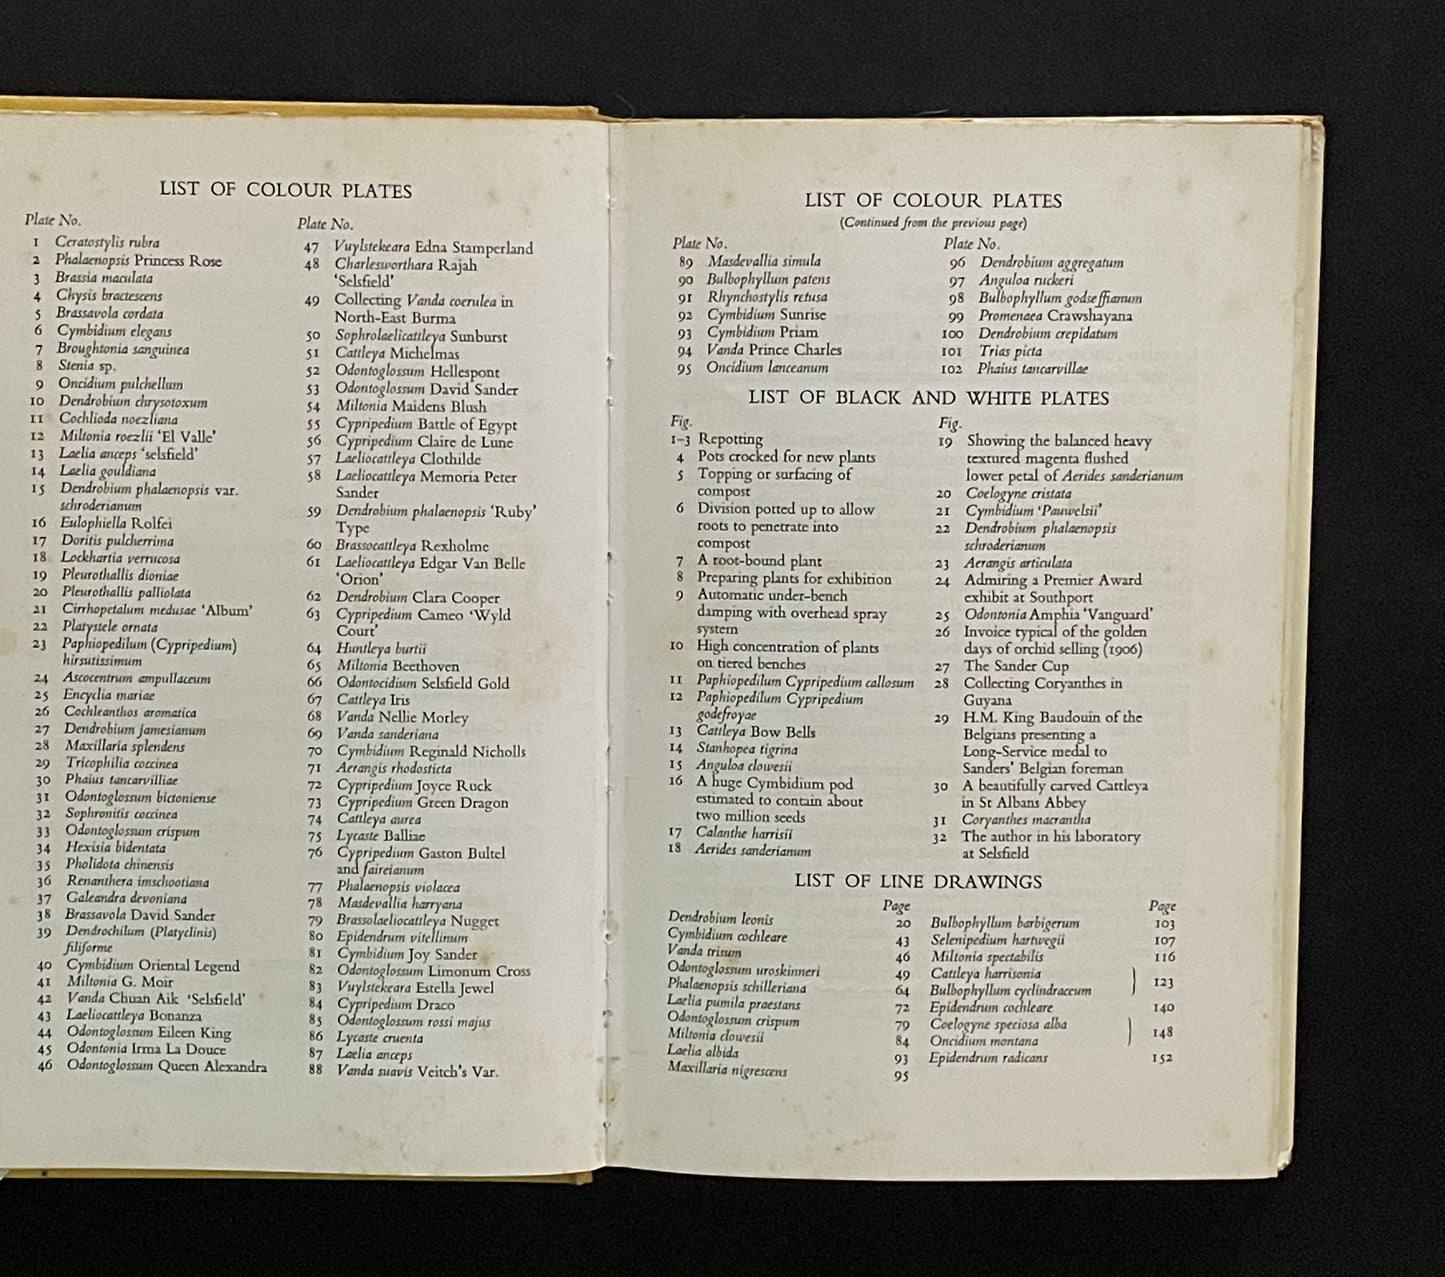 LIST OF COLOUR PLATES
Plate No.
1 Ceratostylis rubra
2 Phalaenopsis Princess Rose
3 Brassia maculata
4 Chysis bractescens
5 Brassavola cordata
6 Cymbidium elegans
7 Broughtonia sanguinea
8 Stenia sp.
9 Oncidium pulchellum
10 Dendrobium chrysotoxum
11 Cochlioda noezliana
12 Miltonia roezlii ‘El Valle’
13 Laelia anceps ‘selsfield’
14 Laelia gouldiana
15 Dendrobium phalaenopsis var.
schroderianum
16 Eulophiella Rolfei
17 Doritis pulcherrima
18 Lockhartia verrucosa
19 Pleurothallis dioniae
20 Pleurothallis palliolata
21 Cirrhopetalum medusae ‘Album’
22 Platystele ornata
23 Paphiopedilum (Cypripedium)
hirsutissimum
24 Ascocentrum ampullaceum
25 Encyclia mariae
26 Cochleanthos aromatica
27 Dendrobium jamesianum
28 Maxillaria splendens
29 Tricophilia coccinea
30 Phaius tancarvilliae
31 Odontoglossum bictoniense
32 Sophronitis coccinea
33 Odontoglossum crispum
34 Hexisia bidentata
35 Pholidota chinensis
36 Renanthera imschootiana
37 Galeandra devoniana
38 Brassavola David Sander
39 Dendrochilum (Platyclinis)
filiforme
40 Cymbidium Oriental Legend
41 Miltonia G. Moir
42 Vanda Chuan Aik ‘Selsfield’
43 Laeliocattleya Bonanza
44 Odontoglossum Eileen King
45 Odontonia Irma La Douce
46 Odontoglossum Queen Alexandra
Plate No.
47 Vuylstekeara Edna Stamperland
48 Charlesworthara Rajah
‘Selsfield’
49 Collecting Vanda coerulea in
North-East Burma
50 Sophrolaelicattleya Sunburst
51 Cattleya Michelmas
52 Odontoglossum Hellespont
53 Odontoglossum David Sander
54 Miltonia Maidens Blush
55 Cypripedium Battle of Egypt
56 Cypripedium Claire de Lune
57 Laeliocattleya Clothilde
58 Laeliocattleya Memoria Peter
Sander
59 Dendrobium phalaenopsis ‘Ruby’
Type
60 Brassocattleya Rexholme
61 Laeliocattleya Edgar Van Belle
‘Orion’
62 Dendrobium Clara Cooper
63 Cypripedium Cameo ‘Wyld
Court’
64 Huntleya burtii
65 Miltonia Beethoven
66 Odontocidium Selsfield Gold
67 Cattleya Iris
68 Vanda Nellie Morley
69 Vanda sanderiana
70 Cymbidium Reginald Nicholls
71 Aerangis rhodosticta
72 Cypripedium Joyce Ruck
73 Cypripedium Green Dragon
74 Cattleya aurea
75 Lycaste Balliae
76 Cypripedium Gaston Bultel
and faireianum
77 Phalaenopsis violacea
78 Masdevallia harryana
79 Brassolaeliocattleya Nugget
80 Epidendrum vitellinum
81 Cymbidium Joy Sander
82 Odontoglossum Limonum Cross
83 Vuylstekeara Estella Jewel
84 Cypripedium Draco
85 Odontoglossum rossi majus
86 Lycaste cruenta
87 Laelia anceps
88 Vanda suavis Veitch's Var.
LIST OF COLOUR PLATES
(Continued from the previous page)
Plate No.
89 Masdevallia simula
90 Bulbophyllum patens
91 Rhynchostylis retusa
92 Cymbidium Sunrise
93 Cymbidium Priam
94 Vanda Prince Charles
95 Oncidium lanceanum
Plate No.
96 Dendrobium aggregatum
97 Anguloa ruckeri
98 Bulbophyllum godseffianum
99 Promenaea Crawshayana
100 Dendrobium crepidatum
101 Trias picta
102 Phaius tancarvillae
LIST OF BLACK AND WHITE PLATES
Fig.
1-3 Repotting
4 Pots crocked for new plants
5 Topping or surfacing of
compost
6 Division potted up to allow
roots to penetrate into
compost
7 A root-bound plant
8 Preparing plants for exhibition
9 Automatic under-bench
damping with overhead spray
system
10 High concentration of plants
on tiered benches
11 Paphiopedilum Cypripedium callosum
12 Paphiopedilum Cypripedium
godefroyae
13 Cattleya Bow Bells
14 Stanhopea tigrina
15 Anguloa clowesii
16 A huge Cymbidium pod
estimated to contain about
two million seeds
17 Calanthe harrisii
18 Aerides sanderianum
Fig.
19 Showing the balanced heavy
textured magenta flushed
lower petal of Aerides sanderianum
20 Coelogyne cristata
21 Cymbidium ‘Pauwelsii’
22 Dendrobium phalaenopsis
schroderianum
23 Aerangis articulata
24 Admiring a Premier Award
exhibit at Southport
25 Odontonia Amphia ‘Vanguard’
26 Invoice typical of the golden
days of orchid selling (1906)
27 The Sander Cup
28 Collecting Coryanthes in
Guyana
29 H.M. King Baudouin of the
Belgians presenting a
Long-Service medal to
Sanders' Belgian foreman
30 A beautifully carved Cattleya
in St Albans Abbey
31 Coryanthes macrantha
32 The author in his laboratory
at Selsfield
LIST OF LINE DRAWINGS
Page
Dendrobium leonis 20
Cymbidium cochleare 43
Vanda trisum 46
Odontoglossum uroskinneri 49
Phalaenopsis schilleriana 64
Laelia pumila praestans 72
Odontoglossum crispum 79
Miltonia clowesii 84
Laelia albida 93
Maxillaria nigrescens 95
Page
Bulbophyllum barbigerum 103
Selenipedium hartwegii 107
Miltonia spectabilis 116
Cattleya harrisonia
Bulbophyllum cyclindraceum } 123
Epidendrum cochleare 140
Coelogyne speciosa alba
Oncidium montana } 148
Epidendrum radicans 152